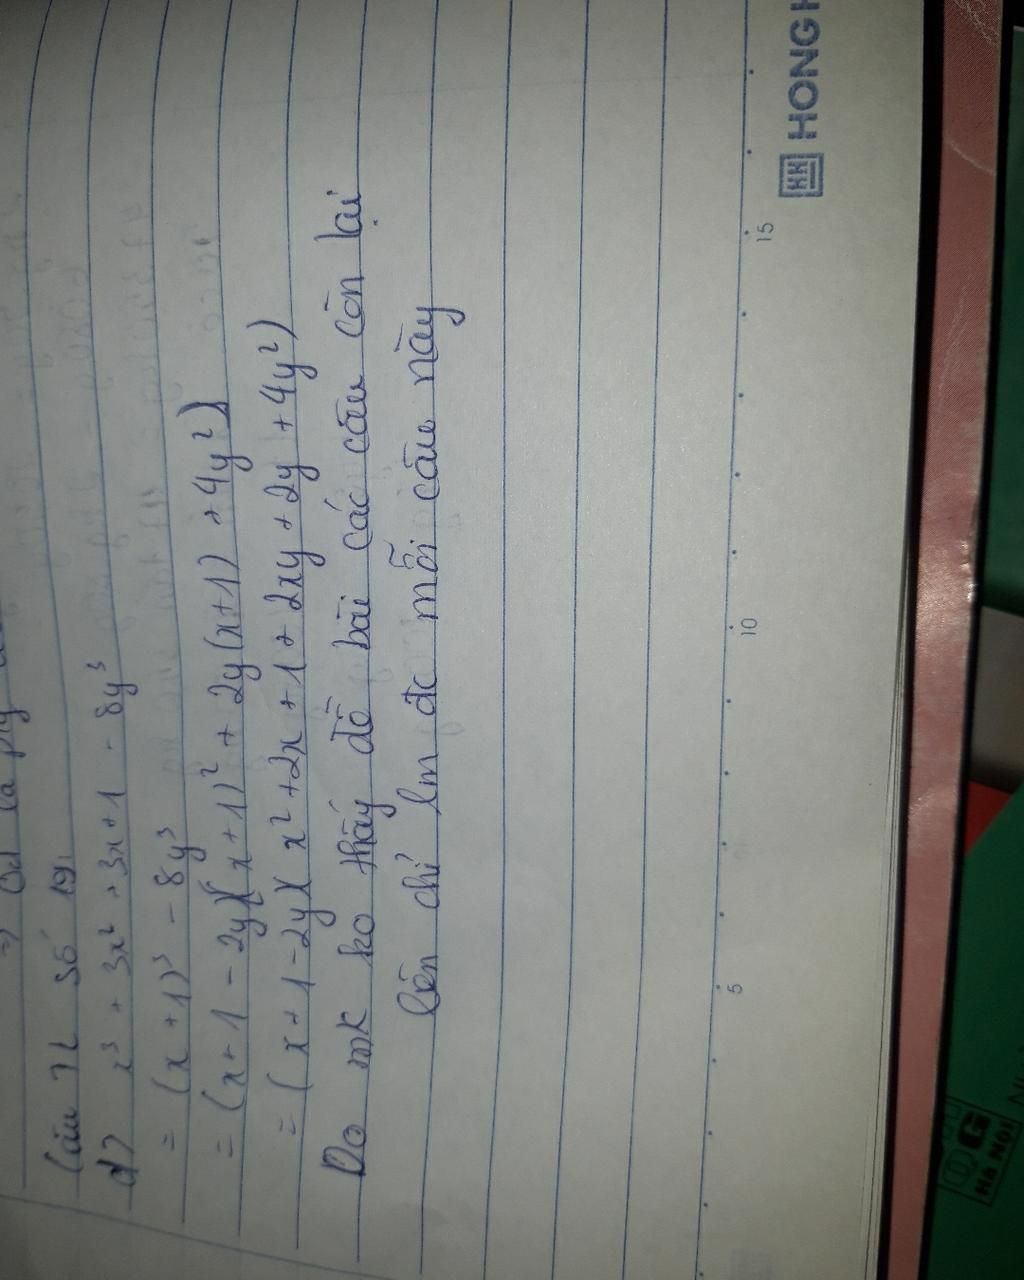 =) Od là
Câu TL Số 19,
d) x³ + 3x² + 3x + 1 - 8y³
= (x + 1)³ - 8y³
= (x + 1 - 2y)[(x + 1)² + 2y(x+1) + 4y²]
= (x + 1 - 2y)(x² + 2x + 1 + 2xy + 2y + 4y²)
Do mk ko thấy đề bài các câu còn lại
lên chỉ lm đc mỗi câu này
5 10 15
HH HONG H
Hà Nội